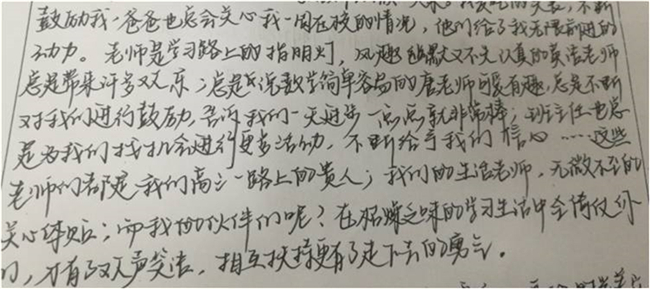 鼓励我，爸爸也总会关心我一周在校的情况，他们给了我无限前进的
动力。老师是学习路上的指明灯，风趣幽默又不失认真的英语老师
总是带来许多欢乐；总是说数学简单容易的唐老师可爱有趣，总是不断
对我们进行鼓励，告诉我们一天进步一点点就非常棒；班主任也总
是为我们找机会进行更多活动，不断给予我们信心……这些
老师们都是我们高三一路上的贵人；我们的生活老师，无微不至的
关心体贴；而我的伙伴们呢？在枯燥乏味的学习生活中全倚仗你
们，才有了欢声笑语，相互扶持更有了走下去的勇气。